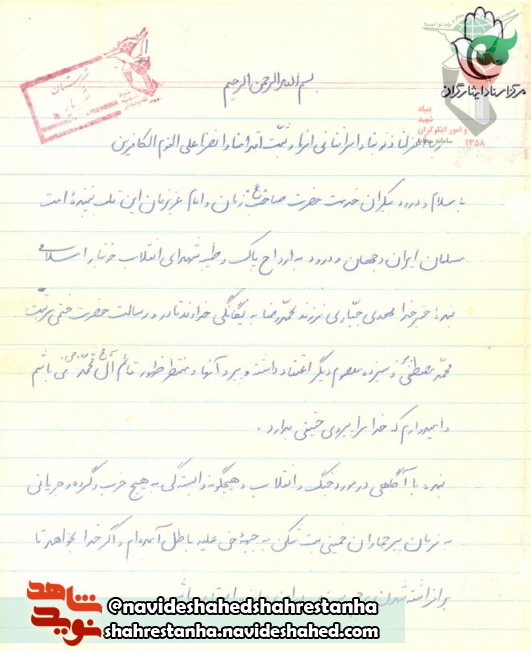 مرکز اسناد ایثارگران
بنیاد
شهید
و امور ایثارگران
۱۳۵۸
بسم الله الرحمن الرحیم
ربنا اغفرلنا ذنوبنا و اسرافنا فی امرنا و ثبت اقدامنا و انصرنا علی القوم الکافرین
با سلام و درود بیکران خدمت حضرت صاحب زمان و امام عزیزمان این قلب تپندهٔ امت
مسلمان ایران و جهان و درود به ارواح پاک و طیبه شهدای انقلاب خونبار اسلامی
بندهٔ حقیر خدا مهدی جباری فرزند محمدرضا به یگانگی خداوند قادر و رسالت حضرت ختمی مرتبت
محمد مصطفی و سیزده معصوم دیگر اعتقاد داشته و پیرو آنها و منتظر ظهور قائم آل محمد می باشم
و امیدوارم که خدا مرا پیروی حقیقی بدارد .
بنده با آگاهی در مورد جنگ و انقلاب و هیچگونه وابستگی به هیچ حزب و گروه و جریانی
به فرمان پیر جماران خمینی بت شکن به جبههٔ حق علیه باطل آمده‌ام و اگر خدا بخواهد تا
برافراشته شدن پرچم
نوید شاهد
@navideshahedshahrestanha
shahrestanha.navideshahed.com